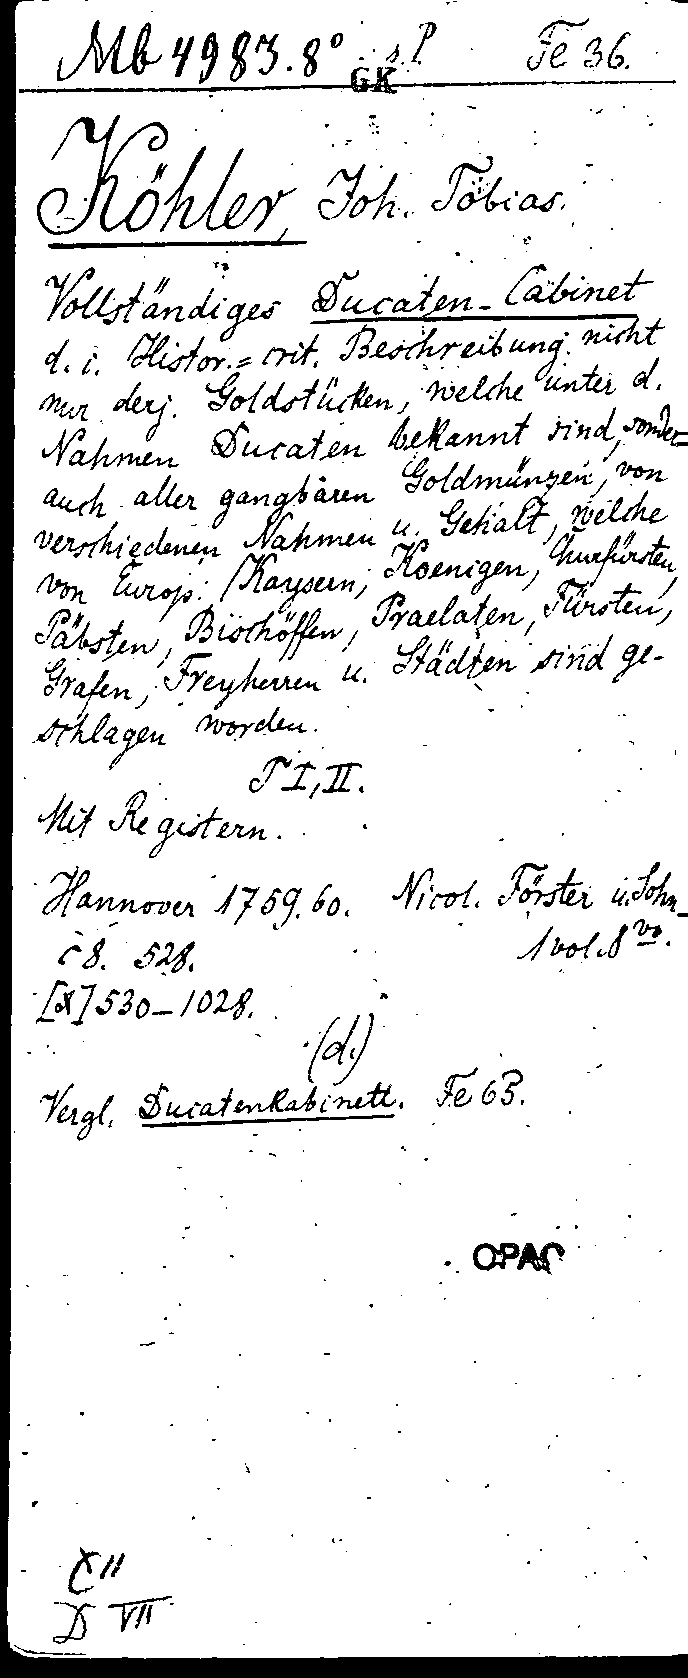 Mb 4983.8° s.P Fe 36.
GK
Köhler, Joh. Tobias.
Vollständiges Ducaten-Cabinet
d. i. Histor.= crit. Beschreibung. nicht
nur derj. Goldstücken, welche unter d.
Nahmen Ducaten bekannt sind, sonder=
auch aller gangbaren Goldmünzen, von
verschiedenen Nahmen u. Gehalt, welche
von Europ: Kaysern, Koenigen, Churfürsten,
Päbsten, Bischöffen, Praelaten, Fürsten,
Grafen, Freyherren u. Städten sind ge-
schlagen worden.
T I, II.
Mit Registern.
Hannover 1759. 60. Nicol. Förster u. Sohn
8. 528. 1 vol. 8vo.
530-1028.
(d.)
Vergl. Ducatenkabinett. Fe 63.
OPAC
D VII